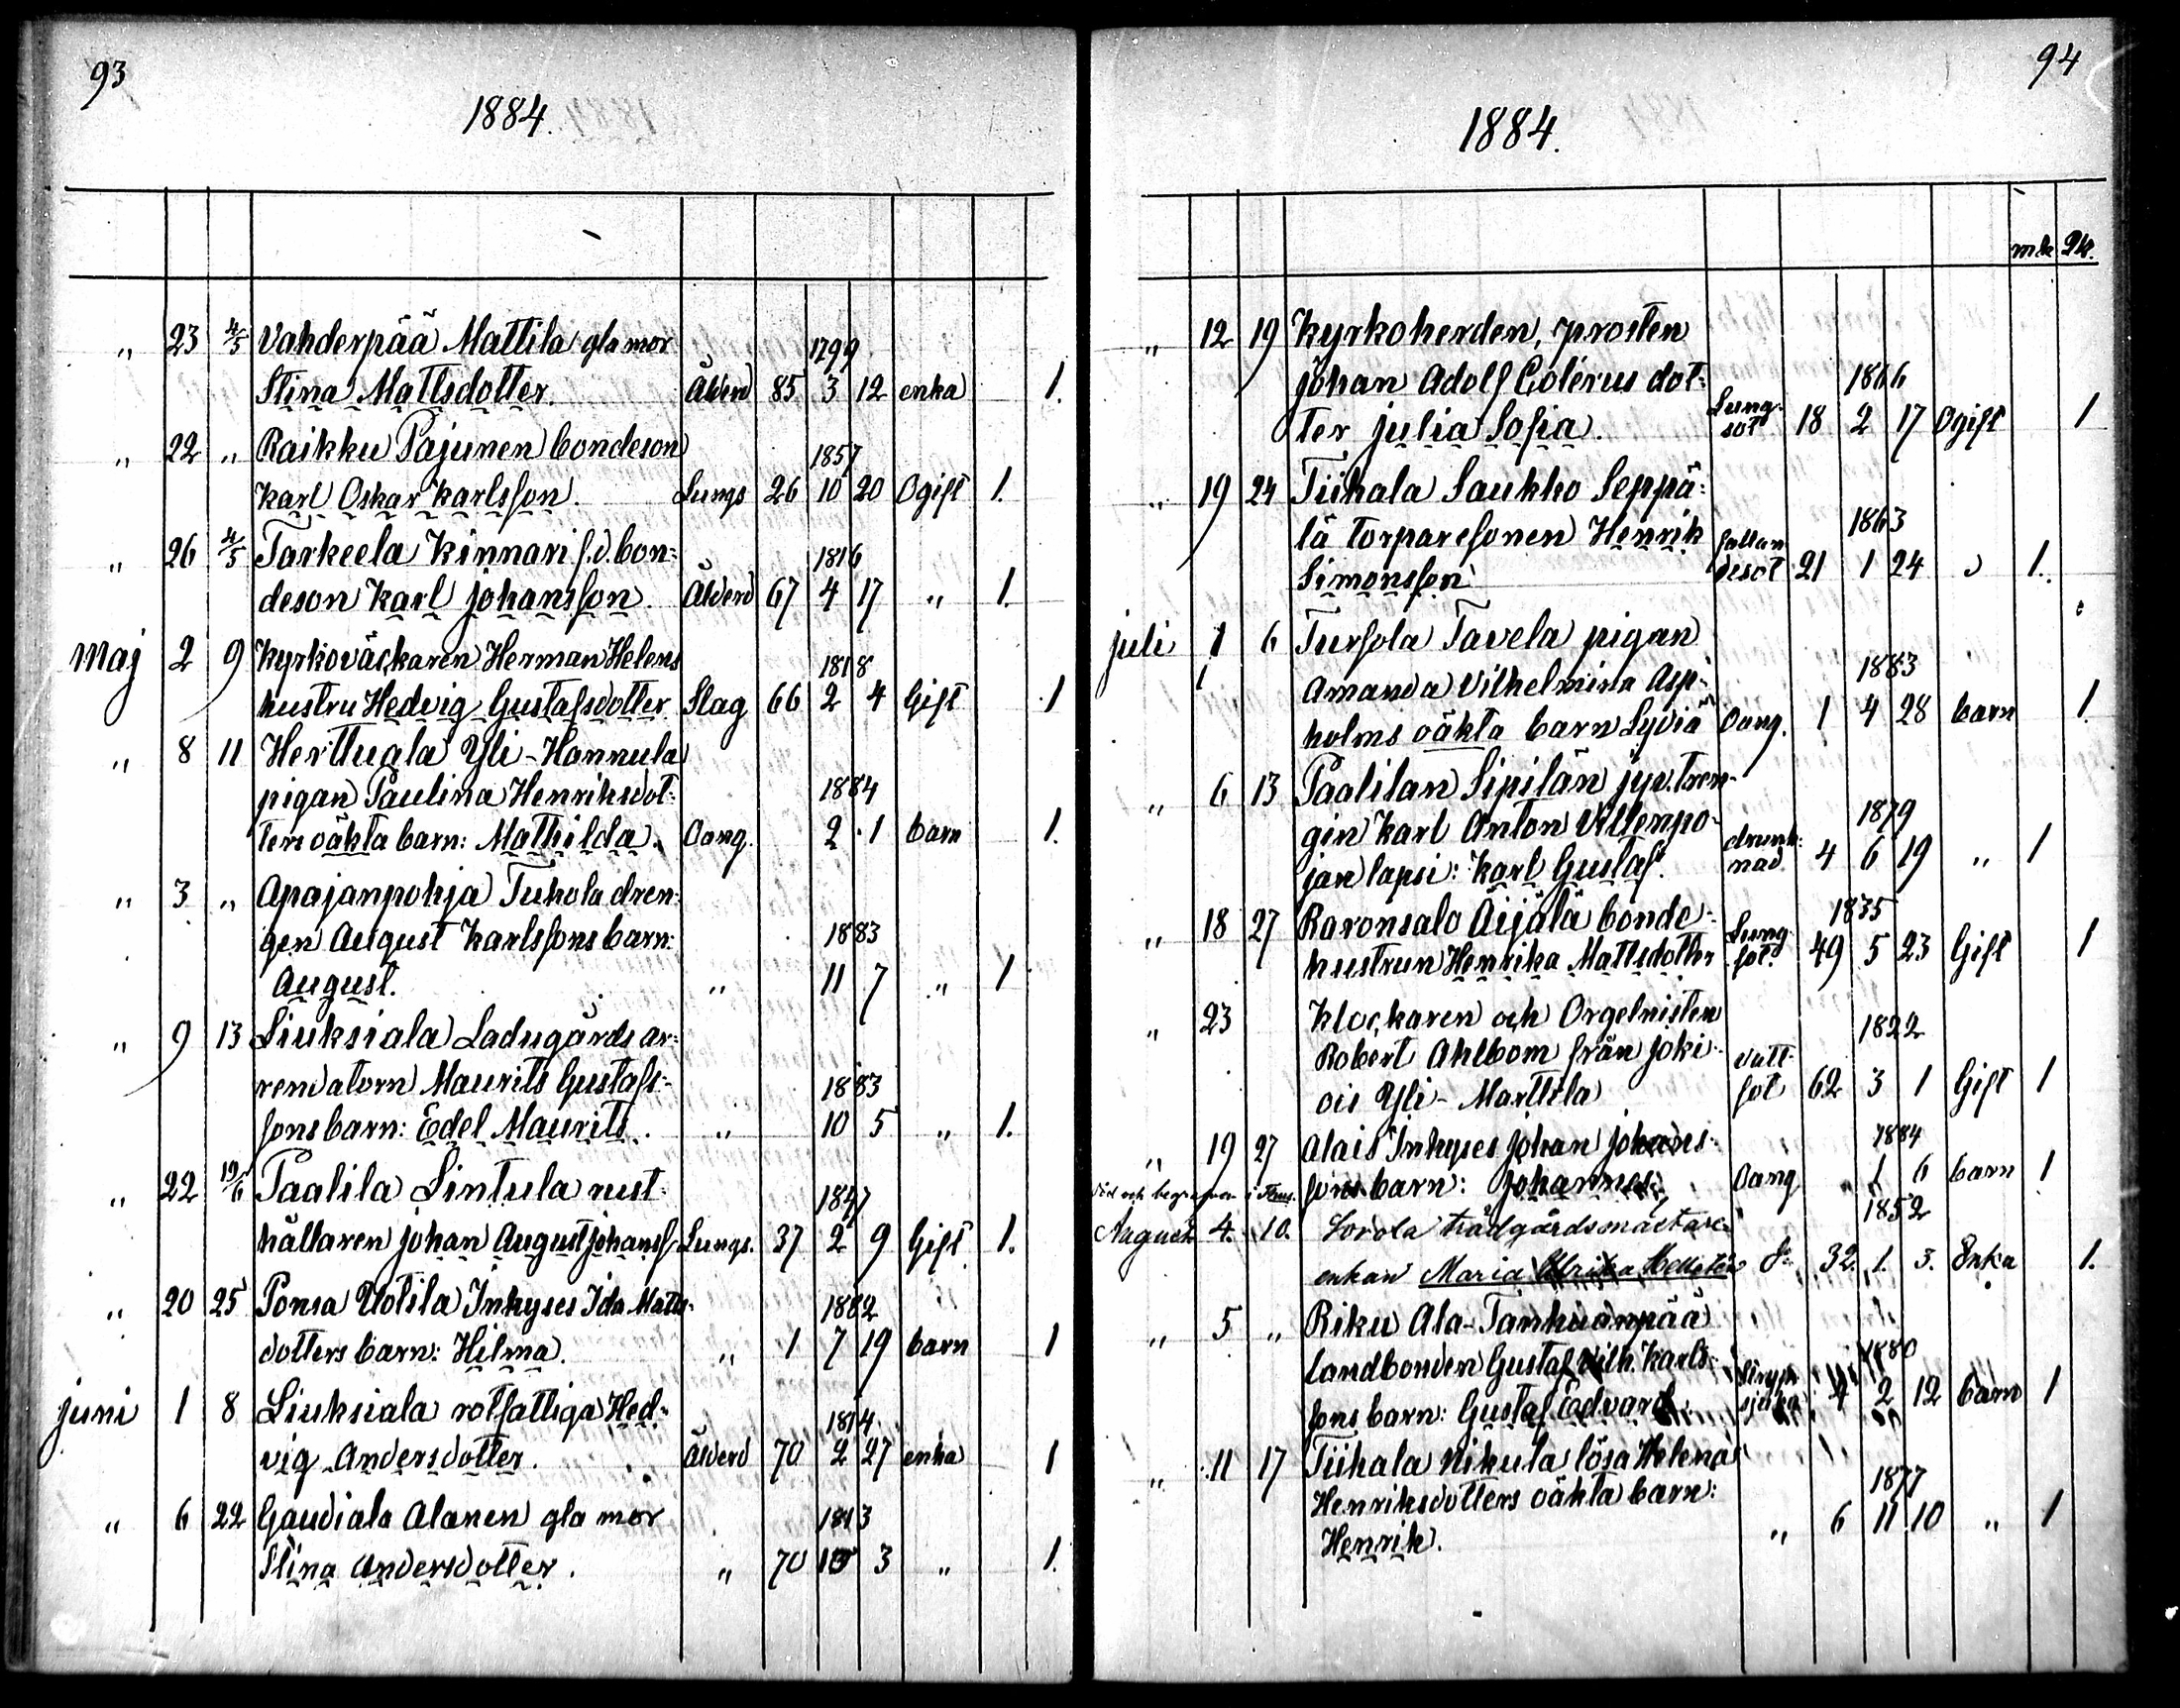 93
1884.
" 23 4/5 Vahderpää Mattila gla mor 1799
Stina Mattsdotter. Ålderd 85 3 12 enka 1.
" 22 " Raikku Pajunen bondeson 1857
Karl Oskar Karlsson. Lungs 26 10 20 Ogift 1.
" 26 4/5 Tarkeela Kinnari f.d. bon= 1816
deson Karl Johansson. Ålderd 67 4 17 " 1.
Maj 2 9 Kyrkoväckaren Herman Helens 1818
hustru Hedvig Gustafsdotter Slag 66 2 4 Gift 1
" 8 11 Herttuala Yli-Hannula
pigan Paulina Henriksdot= 1884
ters oäkta barn: Mathilda. Oang. 2 1 barn 1.
" 3 " Apajanpohja Tukola dren=
gen August Karlssons barn: 1883
August. " 11 7 " 1
" 9 13 Liuksiala Ladugårds ar=
rendatorn Maurits Gustafs= 1883
sons barn: Edel Maurits. " 10 5 " 1.
" 22 19/6 Paalila Lintula rust= 1847
hållaren Johan August Johanss. Lungs. 37 2 9 Gift 1.
" 20 25 Ponsa Uotila Inhyses Ida Matts= 1882
dotters barn: Hilma. " 1 7 19 barn 1
Juni 1 8 Liuksiala rotfattiga Hed= 1814
vig Andersdotter. Ålderd 70 2 27 enka 1
" 6 22 Gaudiala Alanen gla mor 1813
Stina Andersdotter. " 70 3 " 1.
94
1884.
mk pk.
" 12 19 Kyrkoherden, prosten
Johan Adolf Colérus dot= 1866
ter Julia Sofia. Lung-sot 18 2 17 Ogift 1
" 19 24 Tiihala Saukko Seppä=
lä torparesonen Henrik 1863
Simonsson fallandesot 21 1 24 " 1.
Juli 1 6 Tursola Tavela pigan
Amanda Vilhelmina Asp= 1883
holms oäkta barn Lydia Oang. 1 4 28 barn 1.
" 6 13 Paalilan Sipilän jyv. tren=
gin Karl Anton Villenpo= 1879
jan lapsi: Karl Gustaf. drunk=nad 4 6 19 " 1
" 18 27 Raronsalo Äijälä bonde= 1835
hustrun Henrika Mattsdotter Lung-sot. 49 5 23 Gift 1
" 23 Klockaren och Orgelnisten 1822
Robert Ahlbom från Joki=
ois Yli-Marttila Vatt=sot 62 3 1 Gift 1
" 19 27 Alais Inhyses Johan Johans= 1884
sons barn: Johannes. Oang " 1 6 barn 1
Död och begrafven i
Augusti 4. 10. Sorola trädgårdsmästare= 1852
enkan Maria Ulrika Hellstén 32. 1. 3. Enka 1.
" 5 " Riku Ala-Tanhuanpää
landbonden Gustaf Vilh. Karls= 1880
sons barn: Gustaf Edvard. 4 2 12 barn 1
" 11 17 Tiihala Nikula lösa Helena
Henriksdotters oäkta barn: 1877
Henrik. " 6 11 10 " 1